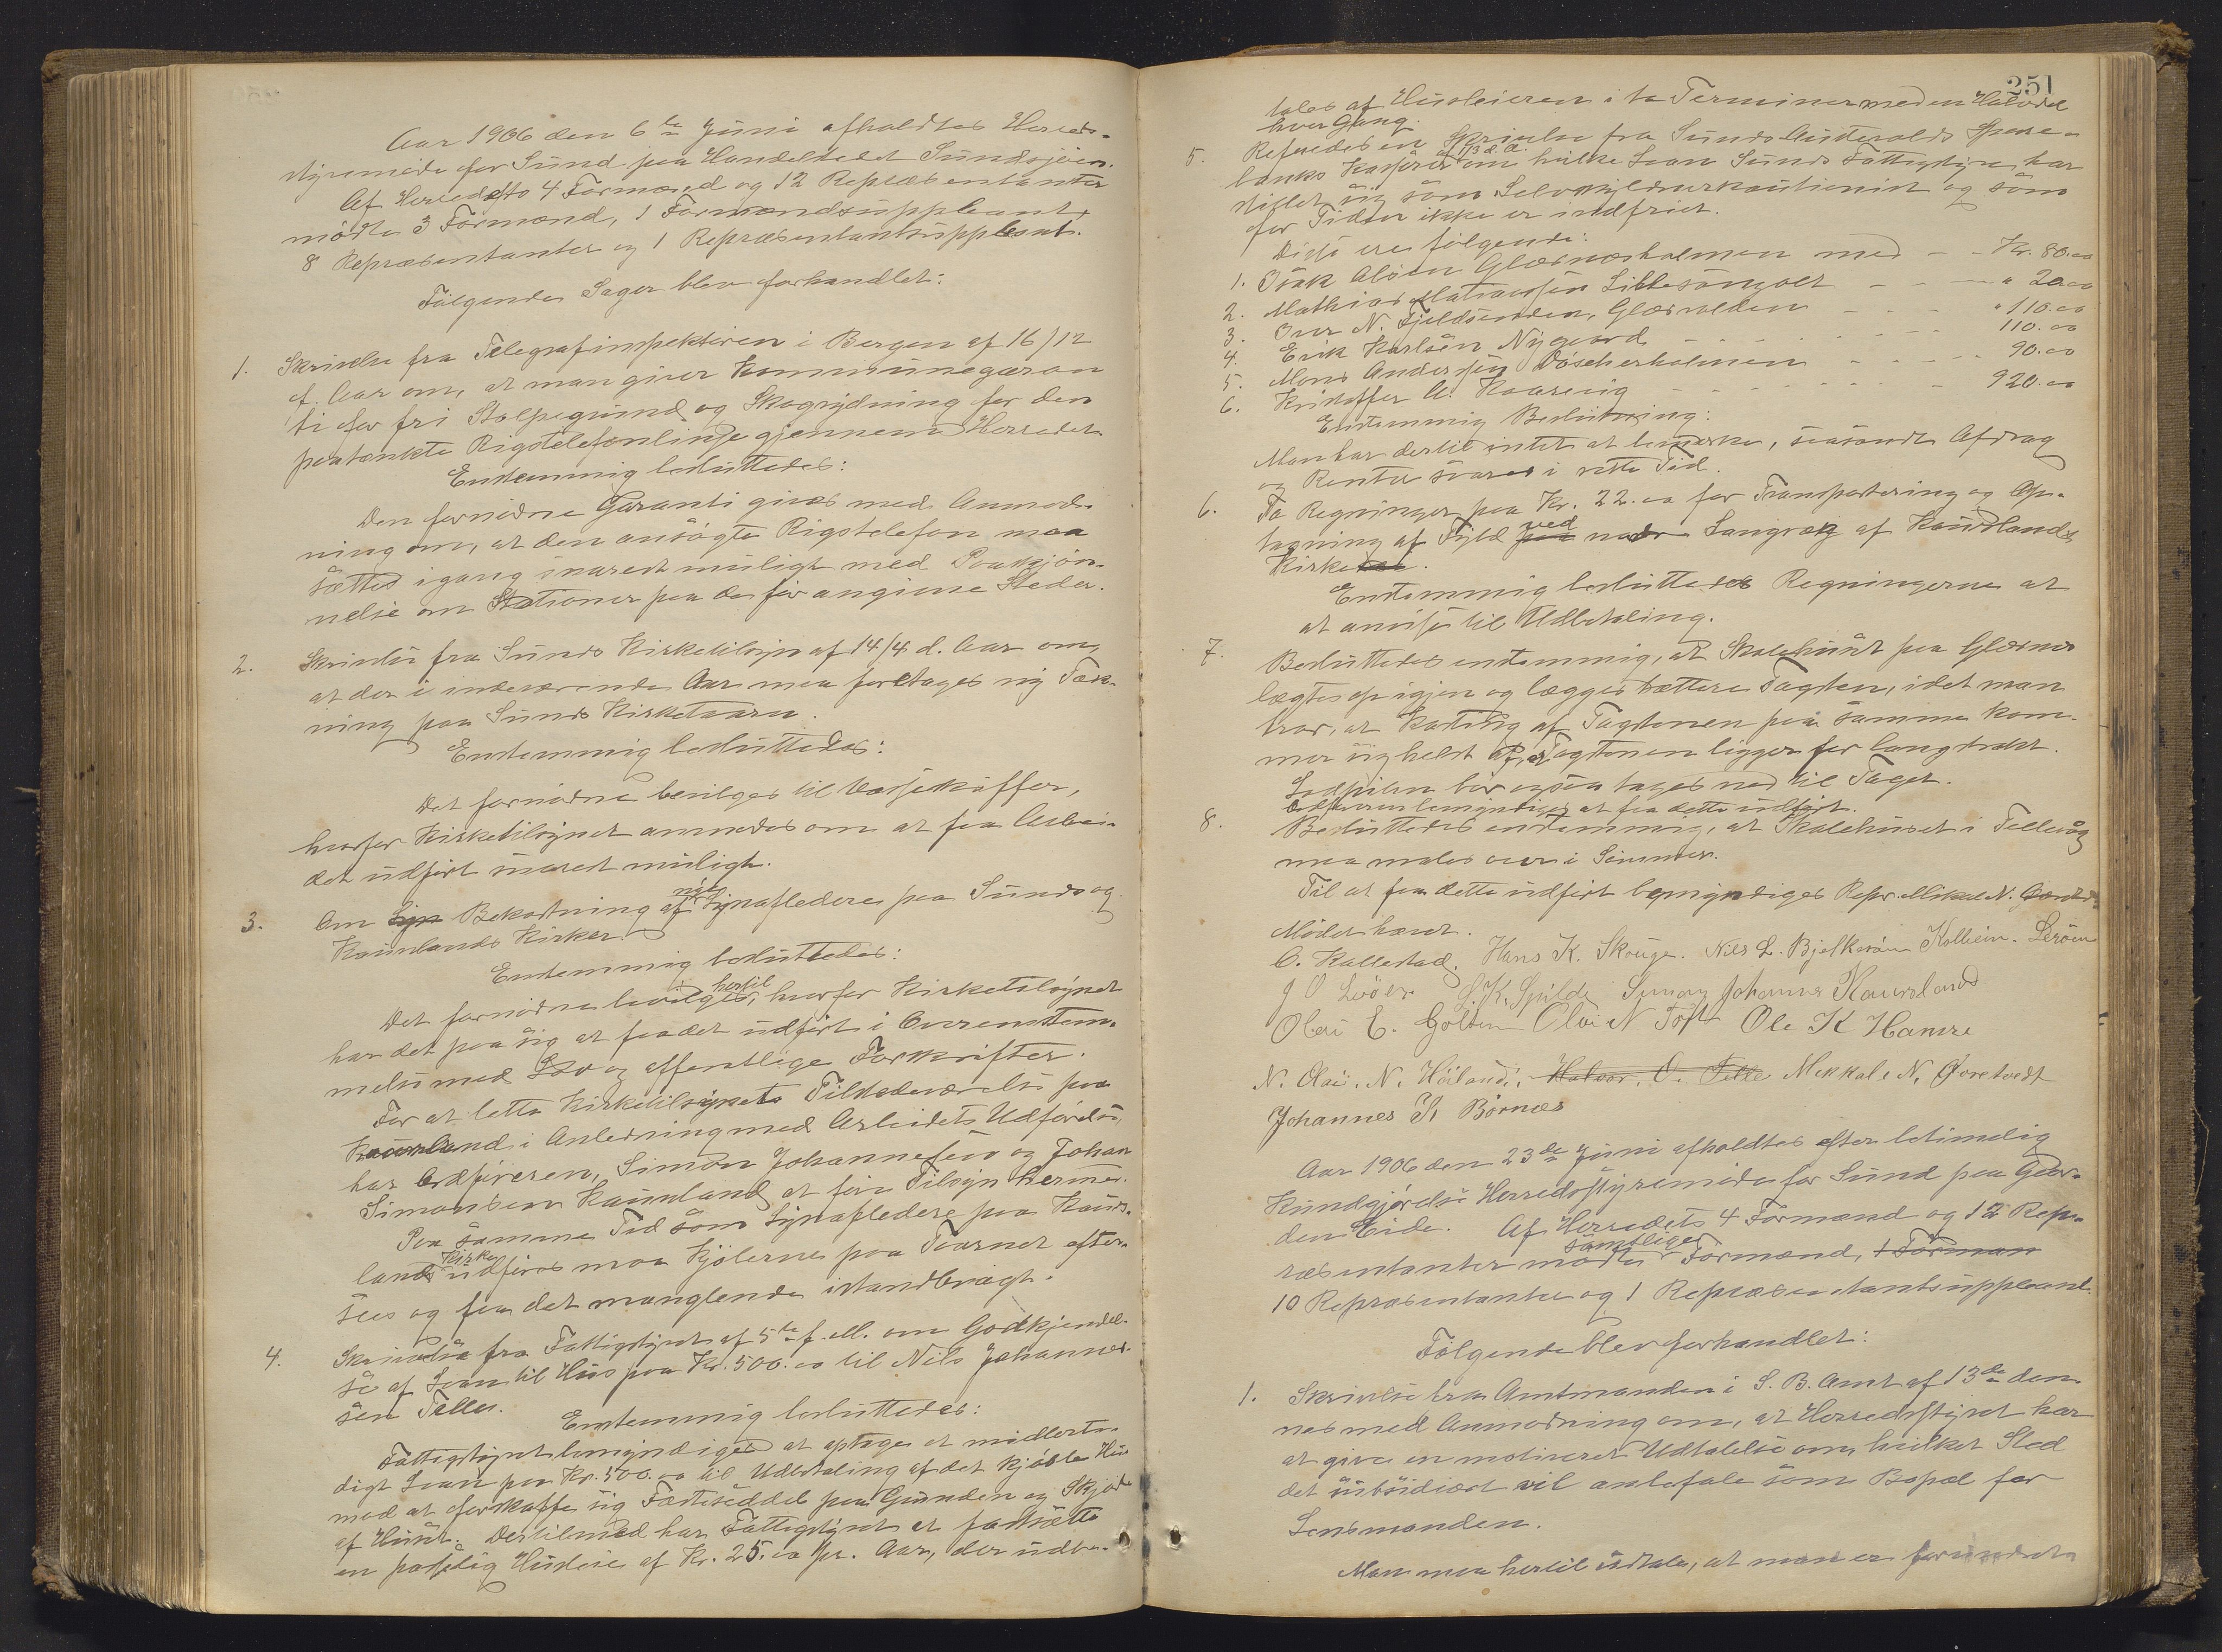 Aar 1906 den 6te Juni afholdtes Herreds-
styremøde for Sund paa Handelstedet Sundsjøen.
Af Herredets 4 Formænd og 12 Repræsentanter
mødte 3 Formænd, 1 Formandsuppleant,
8 Repræsentanter og 1 Repræsentantsuppleant.
Følgende Sager blev forhandlet:
1. Skrivelse fra Telegrafinspektøren i Bergen af 16/12
f. Aar om, at man giver Kommunegaran
ti for fri Stolpegrund og Skogrydning for den
paatænkte Rigstelefonlinje gjennem Herredet.
Enstemmig besluttedes:
Den fornødne Garanti gives med Anmod-
ning om, at den ansøgte Rigstelefon maa
sættes igang snarest muligt med Paaskjøn-
nelse om Stationer paa de før angivne Steder.
2. Skrivelse fra Sunds Kirketilsyn af 14/4 d. Aar om,
at der i indeværende Aar maa foretages ny Tæk-
ning paa Sunds Kirketaarn.
Enstemmig besluttedes:
Det fornødne bevilges til
hvorfor Kirketilsynet anmodes om at faa Arbei-
det udført snarest muligt.
3. Om Lyn Bekostning af nye Lynafledere paa Sunds og
Kauslands Kirker.
Enstemmig besluttedes:
Det fornødne bevilges hertil, hvorfor Kirketilsynet
har det paa sig at faa det udført i Overenstem-
melse med Lov og offentlige Forskrifter.
For at lette Kirketilsynets Tilstedeværelse paa
Kausland i Anledning med Arbeidets Udførelse,
har Ordføreren, Simon Johannesen og Johan
Simonsen Kausland at føre Tilsyn hermed.
Paa samme Tid som Lynafledere paa Kaus-
lands Kirke udføres maa Kjølerne paa Taarnet efter-
sees og faa det manglende istandbragt.
4. Skrivelse fra Fattigstyret af 5te f. M. om Godkjendel-
se af Laan til Hus paa Kr. 500.00 til Nils Johannes-
sen Telle.
Enstemmig besluttedes:
Fattigstyret bemyndiges at optage et midlerti-
digt Laan paa Kr. 500.00 til Udbetaling af det kjøbte Hus
mod at forskaffe sig Fæsteseddel paa Grunden og Skjøde
af Huset. Dertilmed har Fattigstyret at fastsætte
en passelig Husleie af Kr. 25.00 pr. Aar, der udbe-
251
tales af Husleieren i to Terminer med en Halvdel
hver Gang.
5. Refereredes en Skrivelse fra Sunds & Austevolds Spare-
banks Kasserer af 1/3 d. A. om hvilke Laan Sunds Fattigstyre har
stillet sig som Selvskyldnerkautionist og som
for Tiden ikke er indfriet.
Disse ere følgende:
1. Isak Glæsnesholmen med - - Kr. 80.00
2. Mathias Mathiassen Lillesangolt - - - " 20.00
3. Over N. Fjeldsenden, Glæsvolden - - - " 110.00
4. Erik Karlsen Nygaard - - - 110.00
5. Mons Andersen Døscherholmen - - - 90.00
6. Kristoffer A. Kaarevig - - - 920.00
Enstemmig Beslutning:
Man har dertil intet at bemærke, saasandt Afdrag
og Renter svares i rette Tid.
6. To Regninger paa Kr. 22.00 for Transportering og Op-
tagning af Fyld paa ved nedre Langvæg af Kauslands
Kirke.
Enstemmig besluttedes Regningerne at
at anvise til Udbetaling.
7. Besluttedes enstemmig, at Skolehuset paa Glæsnes
lægtes op igjen og lægges tættere Tagsten, idet man
tror, at Kasting af Tagstenen paa samme kom-
mer sig helst af, at Tagstenen ligger for langstrakt.
bør ogsaa tages ned til Taget.
Ordføreren bemyndiges at faa dette udført.
8. Besluttedes enstemmig, at Skolehuset i Tellevåg
maa males over i Sommer.
Til at faa dette udført bemyndiges Repr. Mikal N. Øvretvedt
Mødet hævet.
O. Kallestad. Hans K. Skouge. Nils L. Bjelkarøen Kolbein. Lerøen
J O Lerøen J. K. Spilde Simon Johannes Kausland
Olai E. Golten Olai N Toft Ole K Hamre
N. Olai. N. Høiland. Halvor. O. Telle Mekkal. N. Øvretvedt
Johannes K Børnæs
Aar 1906 den 23de Juni afholdtes efter betimelig
Kundgjørelse Herredsstyremøde for Sund paa Gaar-
den Eide. Af Herredets 4 Formænd og 12 Rep-
ræsentanter mødte samtlige Formænd, 1 Forman
10 Repræsentanter og 1 Repræsentantsuppleant.
Følgende blev forhandlet:
1. Skrivelse fra Amtmanden i S. B. Amt af 13de den-
nes med Anmodning om, at Herredsstyret har
at give en motiveret Udtalelse om, hvilket Sted
det subsidiært vil anbefale som Bopæl for
Lensmanden.
Man maa hertil udtale, at man er forundret